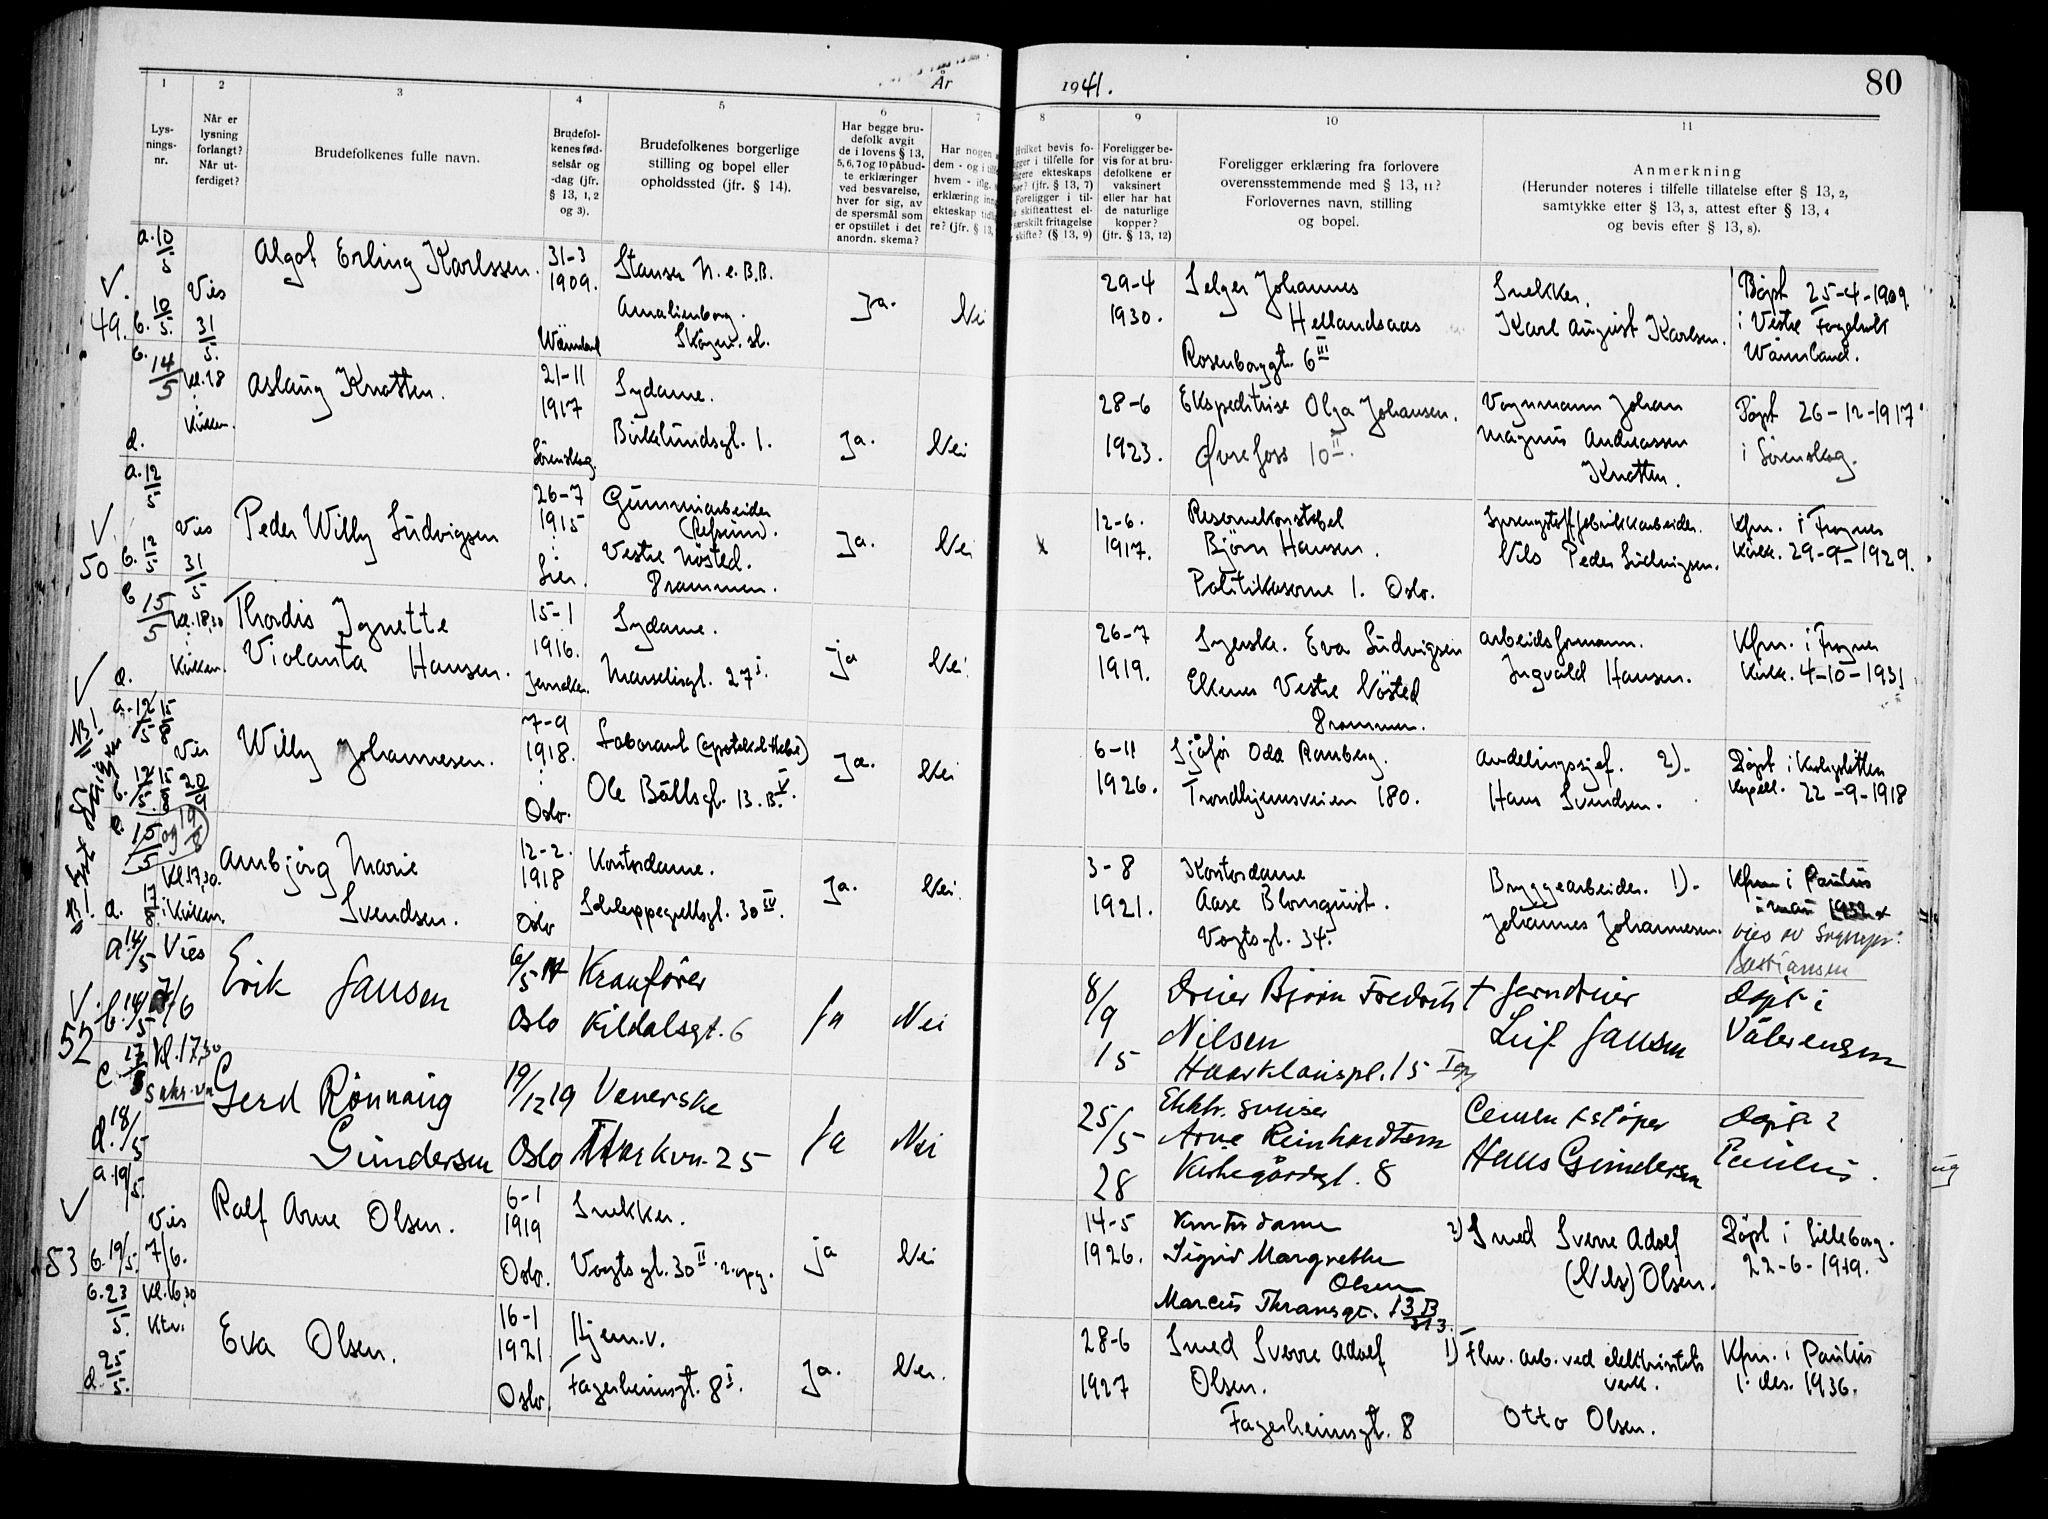 År 1941.
80
1
2
3
4
5
6
7
8
9
10
11
Lys-
nings-
nr.
Når er
lysning
forlangt?
Når ut-
ferdiget?
Brudefolkenes fulle navn.
Brudefol-
kenes fød-
selsår og
-dag (jfr.
§ 13, 1, 2
og 3).
Brudefolkenes borgerlige
stilling og bopel eller
opholdssted (jfr. § 14).
Har begge bru-
defolk avgit
de i lovens § 13,
5, 6, 7 og 10 påbud-
te erklæringer
ved besvarelse,
hver for sig, av
de spørsmål som
er opstillet i det
anordn. skema?
Har nogen
dem - og i
hvem - iflg.
erklæring inng
ekteskap tidl
re? (jfr. § 13,
Hvilket bevis fo-
ligger i tilfelle for
ligere ekteskaps
hør? (jfr. § 13, 7)
Foreligger i til-
skifteattest el-
særskilt fritagelse
skifte? (§ 13, 9)
Foreligger be-
vis for at bru-
defolkene er
vaksinert
eller har hat
de naturlige
kopper?
(jfr. § 13, 12)
Foreligger erklæring fra forlovere
overensstemmende med § 13, 11?
Forlovernes navn, stilling
og bopel.
Anmerkning
(Herunder noteres i tilfelle tillatelse efter § 13, 2,
samtykke efter § 13, 3, attest efter § 13, 4
og bevis efter § 13, 8).
49.
a. 10/5
b. 10/5.
c. 14/5
d.
Vies
31/5.
kl. 18
i
Kirken.
Algot Erling Karlssen.
31-3
1909.
Wärmland
Amalienborg.
Ja.
Nei
29-4
1930.
Selger Johannes
Hellandsaas
Rosenborggt. 6 III
Snekker.
Karl August Karlsen.
Döpt 25-4-1909
i Vestre
Wärmland.
Aslaug Knatten.
21-11
1917
Sörenskog.
Sydame.
Birkelundsgt. 1.
Ja.
Nei
28-6
1923.
Ekspeditrise Olga Johansen.
Øvrefoss 10 II.
Vognmann Johan
Magnus Andreassen
Knatten.
Döpt 26-12-1917
i Sörenskog.
50
a. 12/5
b. 12/5
c 15/5
d.
Vies
31/5
kl. 18,30
i
Kirken.
Peder Willy Ludvigsen
26-7
1915
Lier.
Gummiarbeider
Vestre Nösted.
Drammen.
Ja.
Nei
x
12-6.
1917.
Reservekonstabel
Björn Hansen.
Politikaserne 1. Oslo.
Sprengstoffabrikkarbeider.
Nils Peder Ludvigsen.
Kfm. i Frogner
Kirke. 29-9-1929.
Thordis Agnette
Violanta Hansen.
15-1
1916.
Sydame.
Marselisgt. 27 I.
ja
Nei.
26-7
1919.
Syerske. Eva Ludvigsen
Vestre Nösted
Drammen.
Arbeidsformann.
Ingvald Hansen.
Kfm. i Frogner
Kirke. 4-10-1931
NB!
a. 12/5 15/8
b. 12/5. 15/8
c. 15/5 og 19/8
d. 17/8.
Vies
20/9
Kl. 17,30.
i Kirken.
Willy Johannesen.
7-9
1918.
Oslo.
Ole Bullsgt. 13. B. V.
Ja.
Nei
6-11
1926.
Sjåfør Odd Ramberg.
Trondhjemsveien 180.
Avdelingssjef. 2).
Hans Svendsen.
Döpt i
Kapell. 22-9-1918
Arnbjörg Marie
Svendsen.
12-2.
1918
Oslo
Kontordame.
Schleppegrellsgt. 30 IV.
Ja.
Nei.
3-8
1921.
Kontordame
Aase Blomquist.
Vogtsgt. 34.
Bryggearbeider. 1).
Johannes Johannesen.
Kfm i Paulus
i mai 1932
vies av Sognepr.
Bastiansen
52
a. 14/5
b. 14/5
c 17/5
d. 18/5
Vies
7/6
Kl. 17,30
Erik Jansen
6/5 14
Oslo
Kranfører
Kildalsgt. 6
Ja
Nei
8/9
15
Dreier Björn Fredrik
Nilsen
15
† Jerndreier
Leif Jansen
Döpt i
Vålerengen
Gerd Rönnaug
Gundersen
19/12 19
Oslo
Veverske
25
Ja
Nei
25/5
28
Elektr. sveiser
Arne Reinhardtsen
Kirkegårdsgt. 8
Cementstöper
Hans Gundersen
Döpt i
Paulus.
53
a. 19/5.
b. 19/5.
c. 23/5.
d. 25/5.
Vies
7/6.
Kl. 16,30
Ktr.
Rolf Arne Olsen.
6-1
1919
Oslo.
Snekker.
Vogtsgt. 30 II. 2. opg.
ja
Nei
14-5
1926.
Kontordame
Sigrid Margrethe
Olsen
Marcus Thranesgt. 13 B
2) Smed Sverre Adolf
(Nils) Olsen.
Döpt i Lilleborg.
22-6-1919.
Eva Olsen.
16-1
1921
Oslo.
Hjem.v.
Fagerheimsgt. 8 I.
Ja.
Nei.
28-6
1927
Smed Sverre Adolf
Olsen.
Fagerheimsgt. 8
1) Fhv. arb. ved elektrisitets
verk.
Otto Olsen.
Kfm. i Paulus
1. des. 1936.